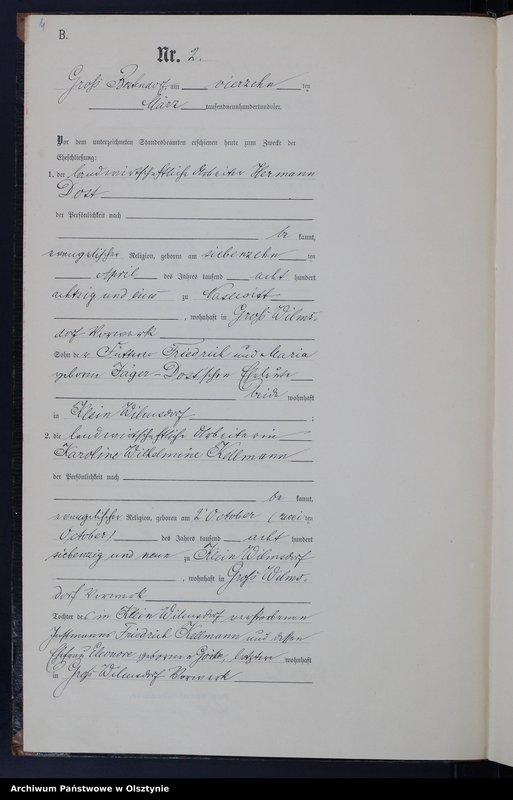 4
B.
Nr. 2.
Groß am vierzehn ten
März tausendneunhundert
Vor dem unterzeichneten Standesbeamten erschienen heute zum Zwecke der
Eheschließung:
1. der landwirthschaftliche Arbeiter Hermann
Dost
der Persönlichkeit nach
be kannt,
evangelischer Religion, geboren am siebenzehn ten
April des Jahres tausend acht hundert
achtzig und eins zu
, wohnhaft in Groß Wilms-
dorf Vorwerk
Sohn de r Friedrich und Maria
geborene Jäger-Dost'schen Eheleute
beide wohnhaft
in Klein Wilmsdorf ;
2. die landwirthschaftliche Arbeiterin
Karoline Wilhelmine Kellmann
der Persönlichkeit nach
be kannt,
evangelischer Religion, geboren am 2ten October (zwei ten
October) des Jahres tausend acht hundert
siebenzig und neun zu Klein Wilmsdorf
, wohnhaft in Groß Wilms-
dorf Vorwerk
Tochter des in Klein Wilmsdorf verstorbenen
Instmanns Friedrich Kellmann und dessen
Ehefrau Eleonore geborene letztere wohnhaft
in Groß Wilmsdorf Vorwerk
Archiwum Państwowe w Olsztynie